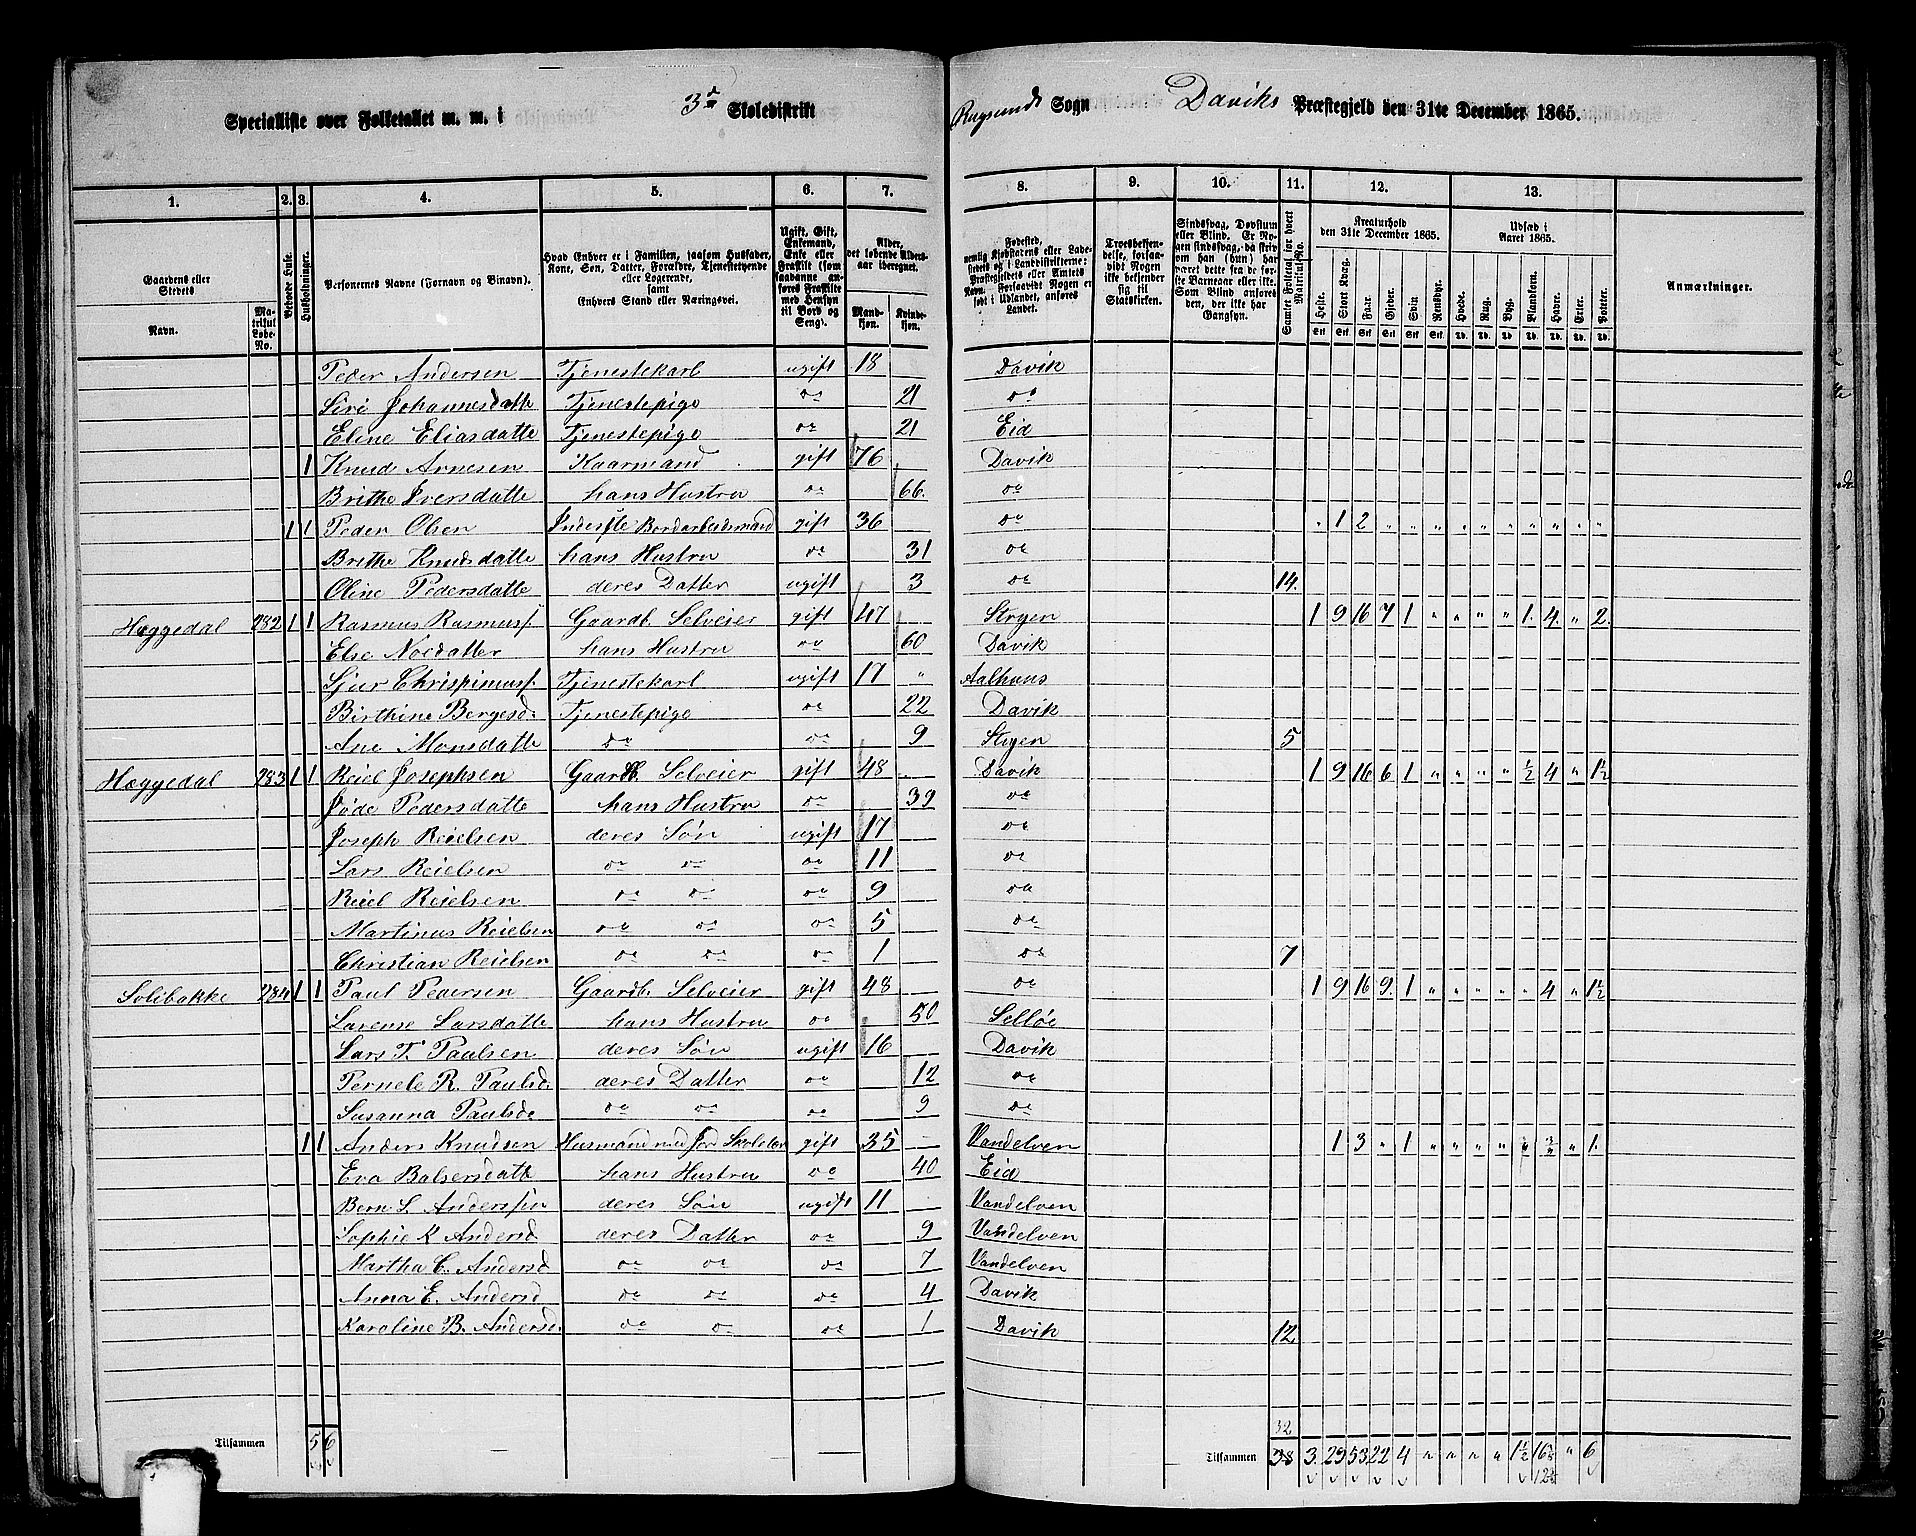 Specialliste over Folketallet m. m. i 3die Skoledistrikt Rugsunds Sogn Daviks Præstegjeld den 31te December 1865.
1. 2. 3. 4. 5. 6. 7. 8. 9. 10. 11. 12. 13.
Gaardens eller Stedets Navn. Matrikul Løbe-No. Beboede Huse. Husholdninger. Personernes Navne (Fornavn og Binavn).
Hvad Enhver er i Familien, saasom Husfader, Kone, Søn, Datter, Forældre, Tjenestetyende eller Logerende, samt Enhvers Stand eller Næringsvei.
Ugift, Gift, Enkemand, Enke eller Fraskilt (som saadanne anføres Fraskilte med Hensyn til Bord og Seng).
Alder, det løbende Aldersaar iberegnet. Mandkjøn. Kvindekjøn.
Fødested, nemlig Kjøbstadens eller Ladestedets og i Landdistrikterne: Præstegjeldets eller Amtets Navn. Forsaavidt Nogen er født i Udlandet, anføres Landet.
Troesbekjendelse, forsaavidt Nogen ikke bekjender sig til Statskirken.
Sindssvag, Døvstum eller Blind. Er Nogen sindssvag, da skriv om han (hun) har været dette fra de første Barneaar eller ikke. Som Blind anføres de, der ikke har Gangsyn.
Samlet Folketal for hvert Matrikul-No.
Kreaturhold den 31te December 1865. Heste. Stort Kvæg. Faar. Gjeder. Svin. Rensdyr.
Udsæd i Aaret 1865. Hvede. Rug. Byg. Blandkorn. Havre. Erter. Poteter.
Anmærkninger.
Peder Andersen Tjenestekarl ugift 18 Davik
Siri Johannesdatte Tjenestepige do 21 do
Eline Eliasdatte Tjenestepige do 21 Eid
1 Knud Arnesen Kaarmand gift 76 Davik
Brithe Iversdatte hans Hustru do 66. do
1 1 Peder Olsen Inderste Bordarbeidsmand gift 36 do " 1 2 " " " " " " " " " "
Brithe Knudsdatte hans Hustru do 31 do
Oline Pedersdatte deres Datter ugift 3 do 14.
Hæggedal 282 1 1 Rasmus Rasmusf Gaardb. Selveier gift 47 Stryen 1 9 16 7 1 " " " " 1. 4. " 2.
Else Noedatter hans Hustru do 60 Davik
Sjur Chrispinusf. Tjenestekarl ugift 17 " Aalhuus
Birthine Bergesd. Tjenestepige do 22 Davik
Ane Monsdatte do do 9 Stryen 5
Hæggedal 283 1 1 Reiel Josephsen Gaardb. Selveier gift 48 Davik 1 9 16 6 1 " " " " 1/2 4 " 1 1/2
Jøde Pedersdatte hans Hustru do 39 do
Joseph Reielsen deres Søn ugift 17 do
Lars Reielsen do do do 11 do
Reiel Reielsen do do do 9 do
Martinus Reielsen do do do 5 do
Christian Reielsen do do do 1 do 7
Solibakke 284 1 1 Paul Pedersen Gaardb. Selveier gift 48 do 1 9 16 9. 1 " " " " " 4 " 1 1/2
Larense Larsdatte hans Hustru do 50 Selløe
Lars T. Paulsen deres Søn ugift 16 Davik
Pernele R. Paulsd. deres Datter do 12 do
Susanna Paulsd do do do 9 do
1 1 Anders Knudsen Husmand med Jord Skolelær gift 35 Vandelven 1 3 " 1 " " " " " " 1.
Eva Balsersdatte hans Hustru do 40 Eid
Bern S. Anderssen deres Søn ugift 11 Vandelven
Sophie K Andersd deres Datter do 9 Vandelven
Martha C. Andersd do do do 7 Vandelven
Anna E. Andersd do do do 4 Davik
Karoline B. Andersd. do do do 1 Davik 12
32
Tilsammen 5 6 Tilsammen 38 3. 29 53 22 4 " " " " 1 1/2 16 " 6